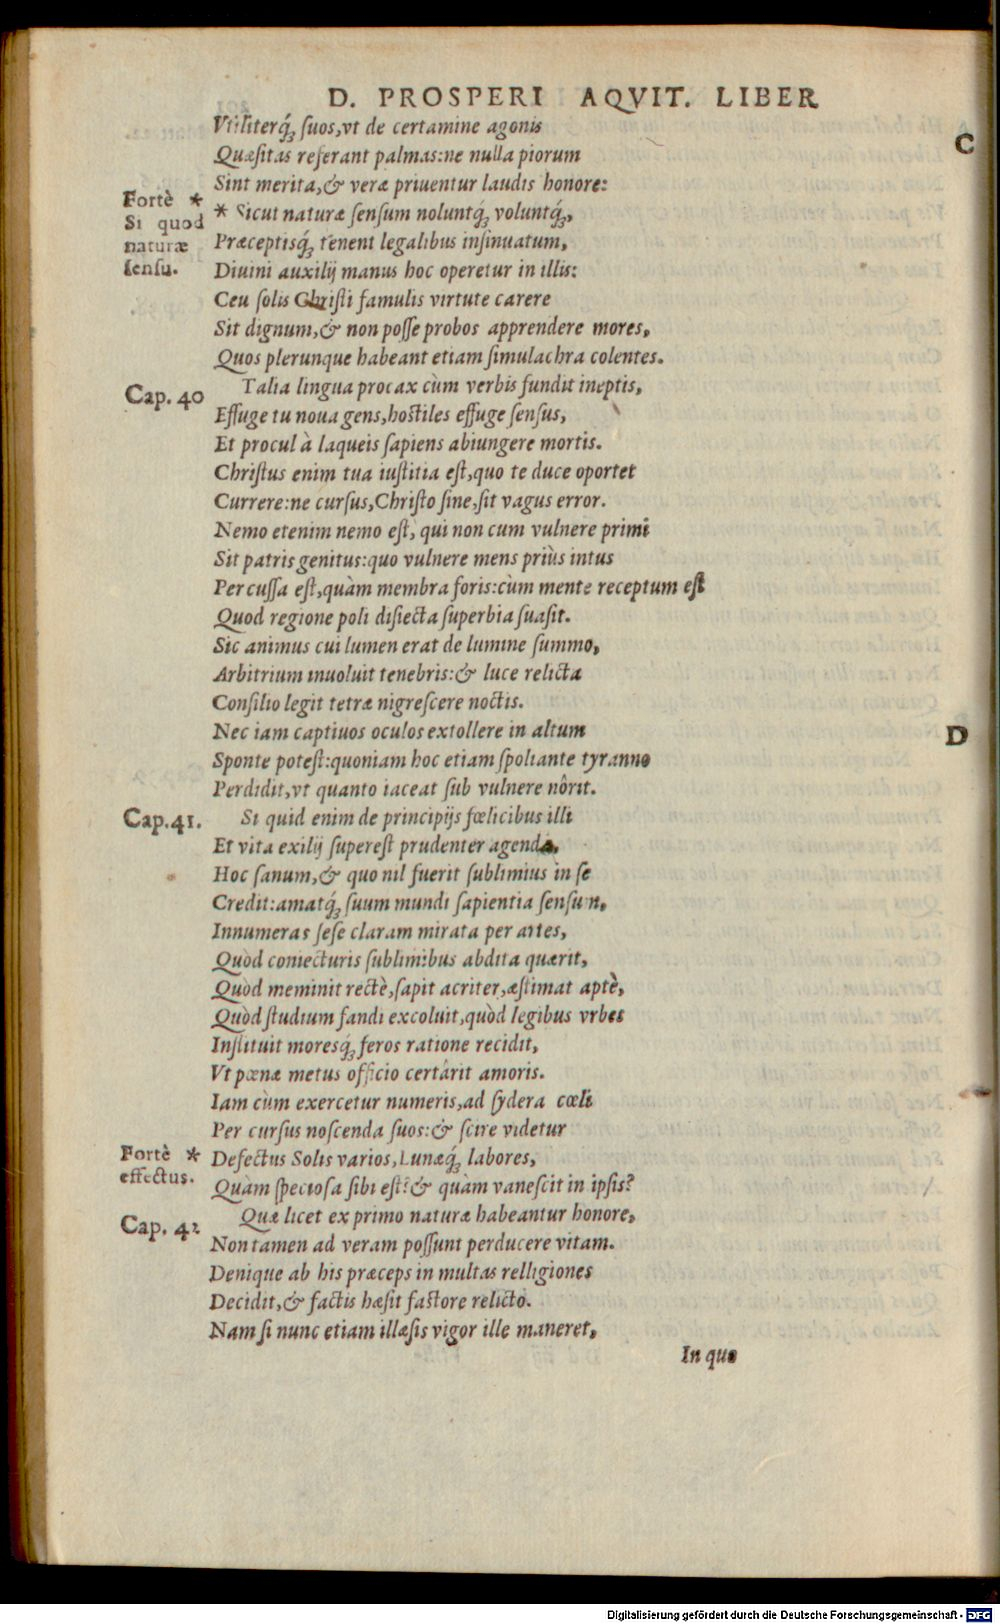 D. PROSPERI AQVIT. LIBER
Vtiliterq́; suos, vt de certamine agonis
C
Quæsitas referant palmas: ne nulla piorum
Sint merita, & veræ priuentur laudis honore:
Fortè *
Si quod
naturæ
sensu.
* Sicut naturæ sensum noluntq́; voluntq́;,
Præceptisq́; tenent legalibus insinuatum,
Diuini auxilij manus hoc operetur in illis:
Ceu solis Christi famulis virtute carere
Sit dignum, & non posse probos apprendere mores,
Quos plerunque habeant etiam simulachra colentes.
Cap. 40
Talia lingua procax cùm verbis fundit ineptis,
Effuge tu noua gens, hostiles effuge sensus,
Et procul à laqueis sapiens abiungere mortis.
Christus enim tua iustitia est, quo te duce oportet
Currere: ne cursus, Christo sine, sit vagus error.
Nemo etenim nemo est, qui non cum vulnere primi
Sit patris genitus: quo vulnere mens priùs intus
Percussa est, quàm membra foris: cùm mente receptum est
Quod regione poli disiecta superbia suasit.
Sic animus cui lumen erat de lumine summo,
Arbitrium inuoluit tenebris: & luce relicta
Consilio legit tetræ nigrescere noctis.
Nec iam captiuos oculos extollere in altum
D
Sponte potest: quoniam hoc etiam spoliante tyranno
Perdidit, vt quanto iaceat sub vulnere nôrit.
Cap. 41.
Si quid enim de principijs fœlicibus illi
Et vita exilij superest prudenter agenda,
Hoc sanum, & quo nil fuerit sublimius in se
Credit: amatq́; suum mundi sapientia sensum,
Innumeras sese claram mirata per artes,
Quòd coniecturis sublimibus abdita quærit,
Quòd meminit rectè, sapit acriter, æstimat aptè,
Quòd studium fandi excoluit, quòd legibus vrbes
Instituit moresq́; feros ratione recidit,
Vt pœnæ metus officio certârit amoris.
Iam cùm exercetur numeris, ad sydera cœli
Per cursus noscenda suos: & scire videtur
Fortè *
effectus.
Defectus Solis varios, Lunæq́; labores,
Quàm speciosa sibi est? & quàm vanescit in ipsis?
Cap. 42
Quæ licet ex primo naturæ habeantur honore,
Non tamen ad veram possunt perducere vitam.
Denique ab his præceps in multas relligiones
Decidit, & factis hæsit factore relicto.
Nam si nunc etiam illæsis vigor ille maneret,
In quo
Digitalisierung gefördert durch die Deutsche Forschungsgemeinschaft - DFG